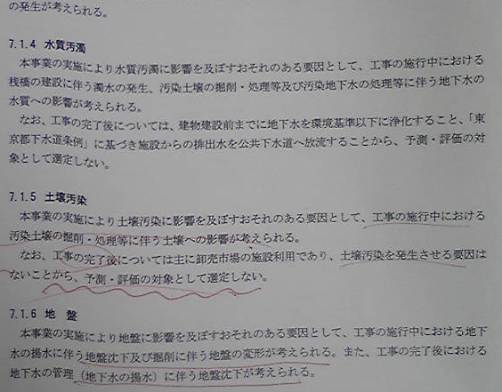 の発生が考えられる。
7.1.4 水質汚濁
本事業の実施により水質汚濁に影響を及ぼすおそれのある要因として、工事の施行中における
桟橋の建設に伴う濁水の発生、汚染土壌の掘削・処理等及び汚染地下水の処理等に伴う地下水の
水質への影響が考えられる。
なお、工事の完了後については、建物建設前までに地下水を環境基準以下に浄化すること、「東
京都下水道条例」に基づき施設からの排出水を公共下水道へ放流することから、予測・評価の対
象として選定しない。
7.1.5 土壌汚染
本事業の実施により土壌汚染に影響を及ぼすおそれのある要因として、工事の施行中における
汚染土壌の掘削・処理等に伴う土壌への影響が考えられる。
なお、工事の完了後については主に卸売市場の施設利用であり、土壌汚染を発生させる要因は
ないことから、予測・評価の対象として選定しない。
7.1.6 地 盤
本事業の実施により地盤に影響を及ぼすおそれのある要因として、工事の施行中における地下
水の揚水に伴う地盤沈下及び掘削に伴う地盤の変形が考えられる。また、工事の完了後における
地下水の管理（地下水の揚水）に伴う地盤沈下が考えられる。